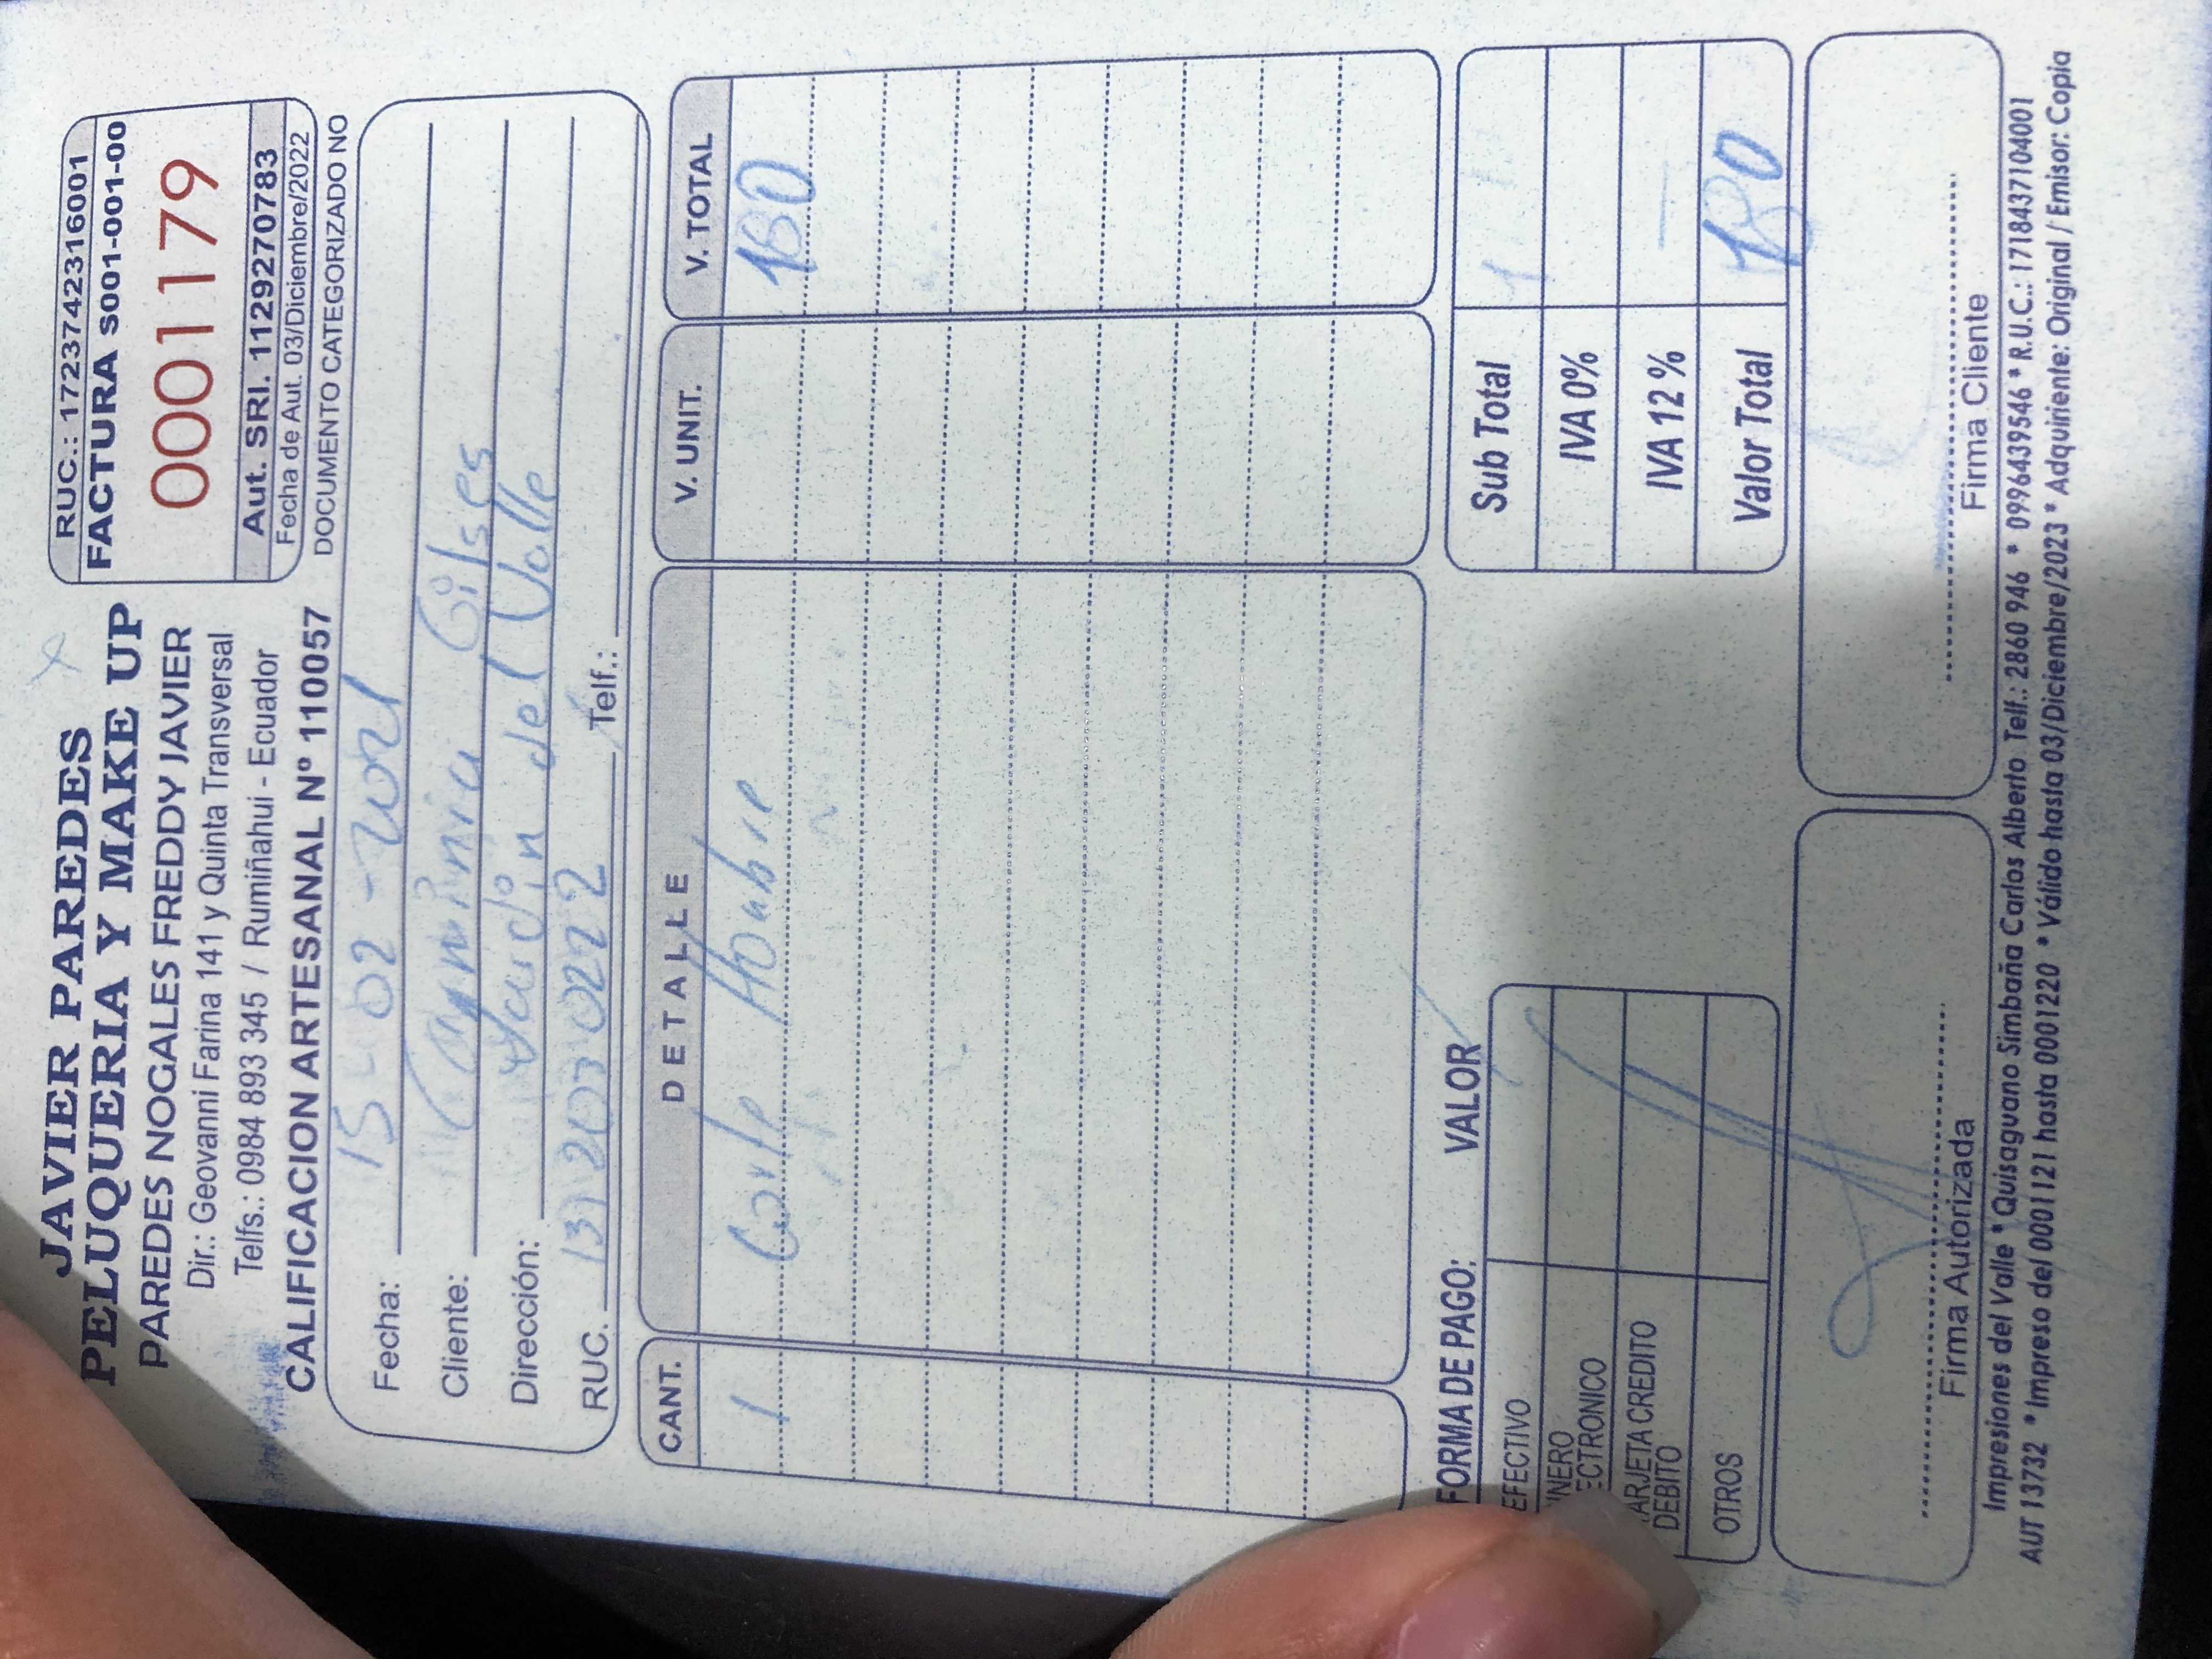 JAVIER PAREDES
PELUQUERIA Y MAKE UP
PAREDES NOGALES FREDDY JAVIER
Dir.: Geovanni Farina 141 y Quinta Transversal
Telfs.: 0984 893 345 / Rumiñahui - Ecuador
CALIFICACION ARTESANAL Nº 110057
RUC.: 1723742316001
FACTURA S001-001-00
0001179
Aut. SRI. 1129270783
Fecha de Aut. 03/Diciembre/2022
DOCUMENTO CATEGORIZADO NO
Fecha: 15-02-2021
Cliente:
Dirección: Jardin del Valle
RUC.
Telf.:
CANT. DETALLE V. UNIT. V. TOTAL
1 Corte Hombre 180
FORMA DE PAGO: VALOR
EFECTIVO
INERO
ECTRONICO
TARJETA CREDITO
DEBITO
OTROS
Sub Total
IVA 0%
IVA 12 % —
Valor Total 180
Firma Autorizada
Firma Cliente
Impresiones del Valle * Quisaguano Simbaña Carlos Alberto Telf.: 2860 946 * 0996439546 * R.U.C.: 1718437104001
AUT 13732 * Impreso del 0001121 hasta 0001220 * Válido hasta 03/Diciembre/2023 * Adquiriente: Original / Emisor: Copia